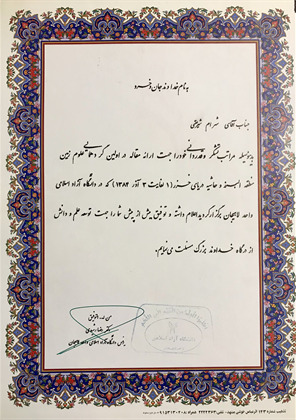 بنام خداوند جان و خرد
جناب آقای شهرام شریعتی
بدینوسیله مراتب تشکر و قدردانی خود را جهت ارائه مقاله در اولین گردهمایی علوم زمین
منطقه البرز و حاشیه دریای خزر (۱ لغایت ۳ آذر ۱۳۸۴) که در دانشگاه آزاد اسلامی
واحد لاهیجان برگزار گردید اعلام داشته و توفیق بیش از پیش شما را جهت توسعه علم و دانش
از درگاه خداوند بزرگ مسئلت می‌نمایم.
من ا... التوفیق
دکتر رضا
رئیس دانشگاه آزاد اسلامی واحد لاهیجان
دانشگاه آزاد اسلامی